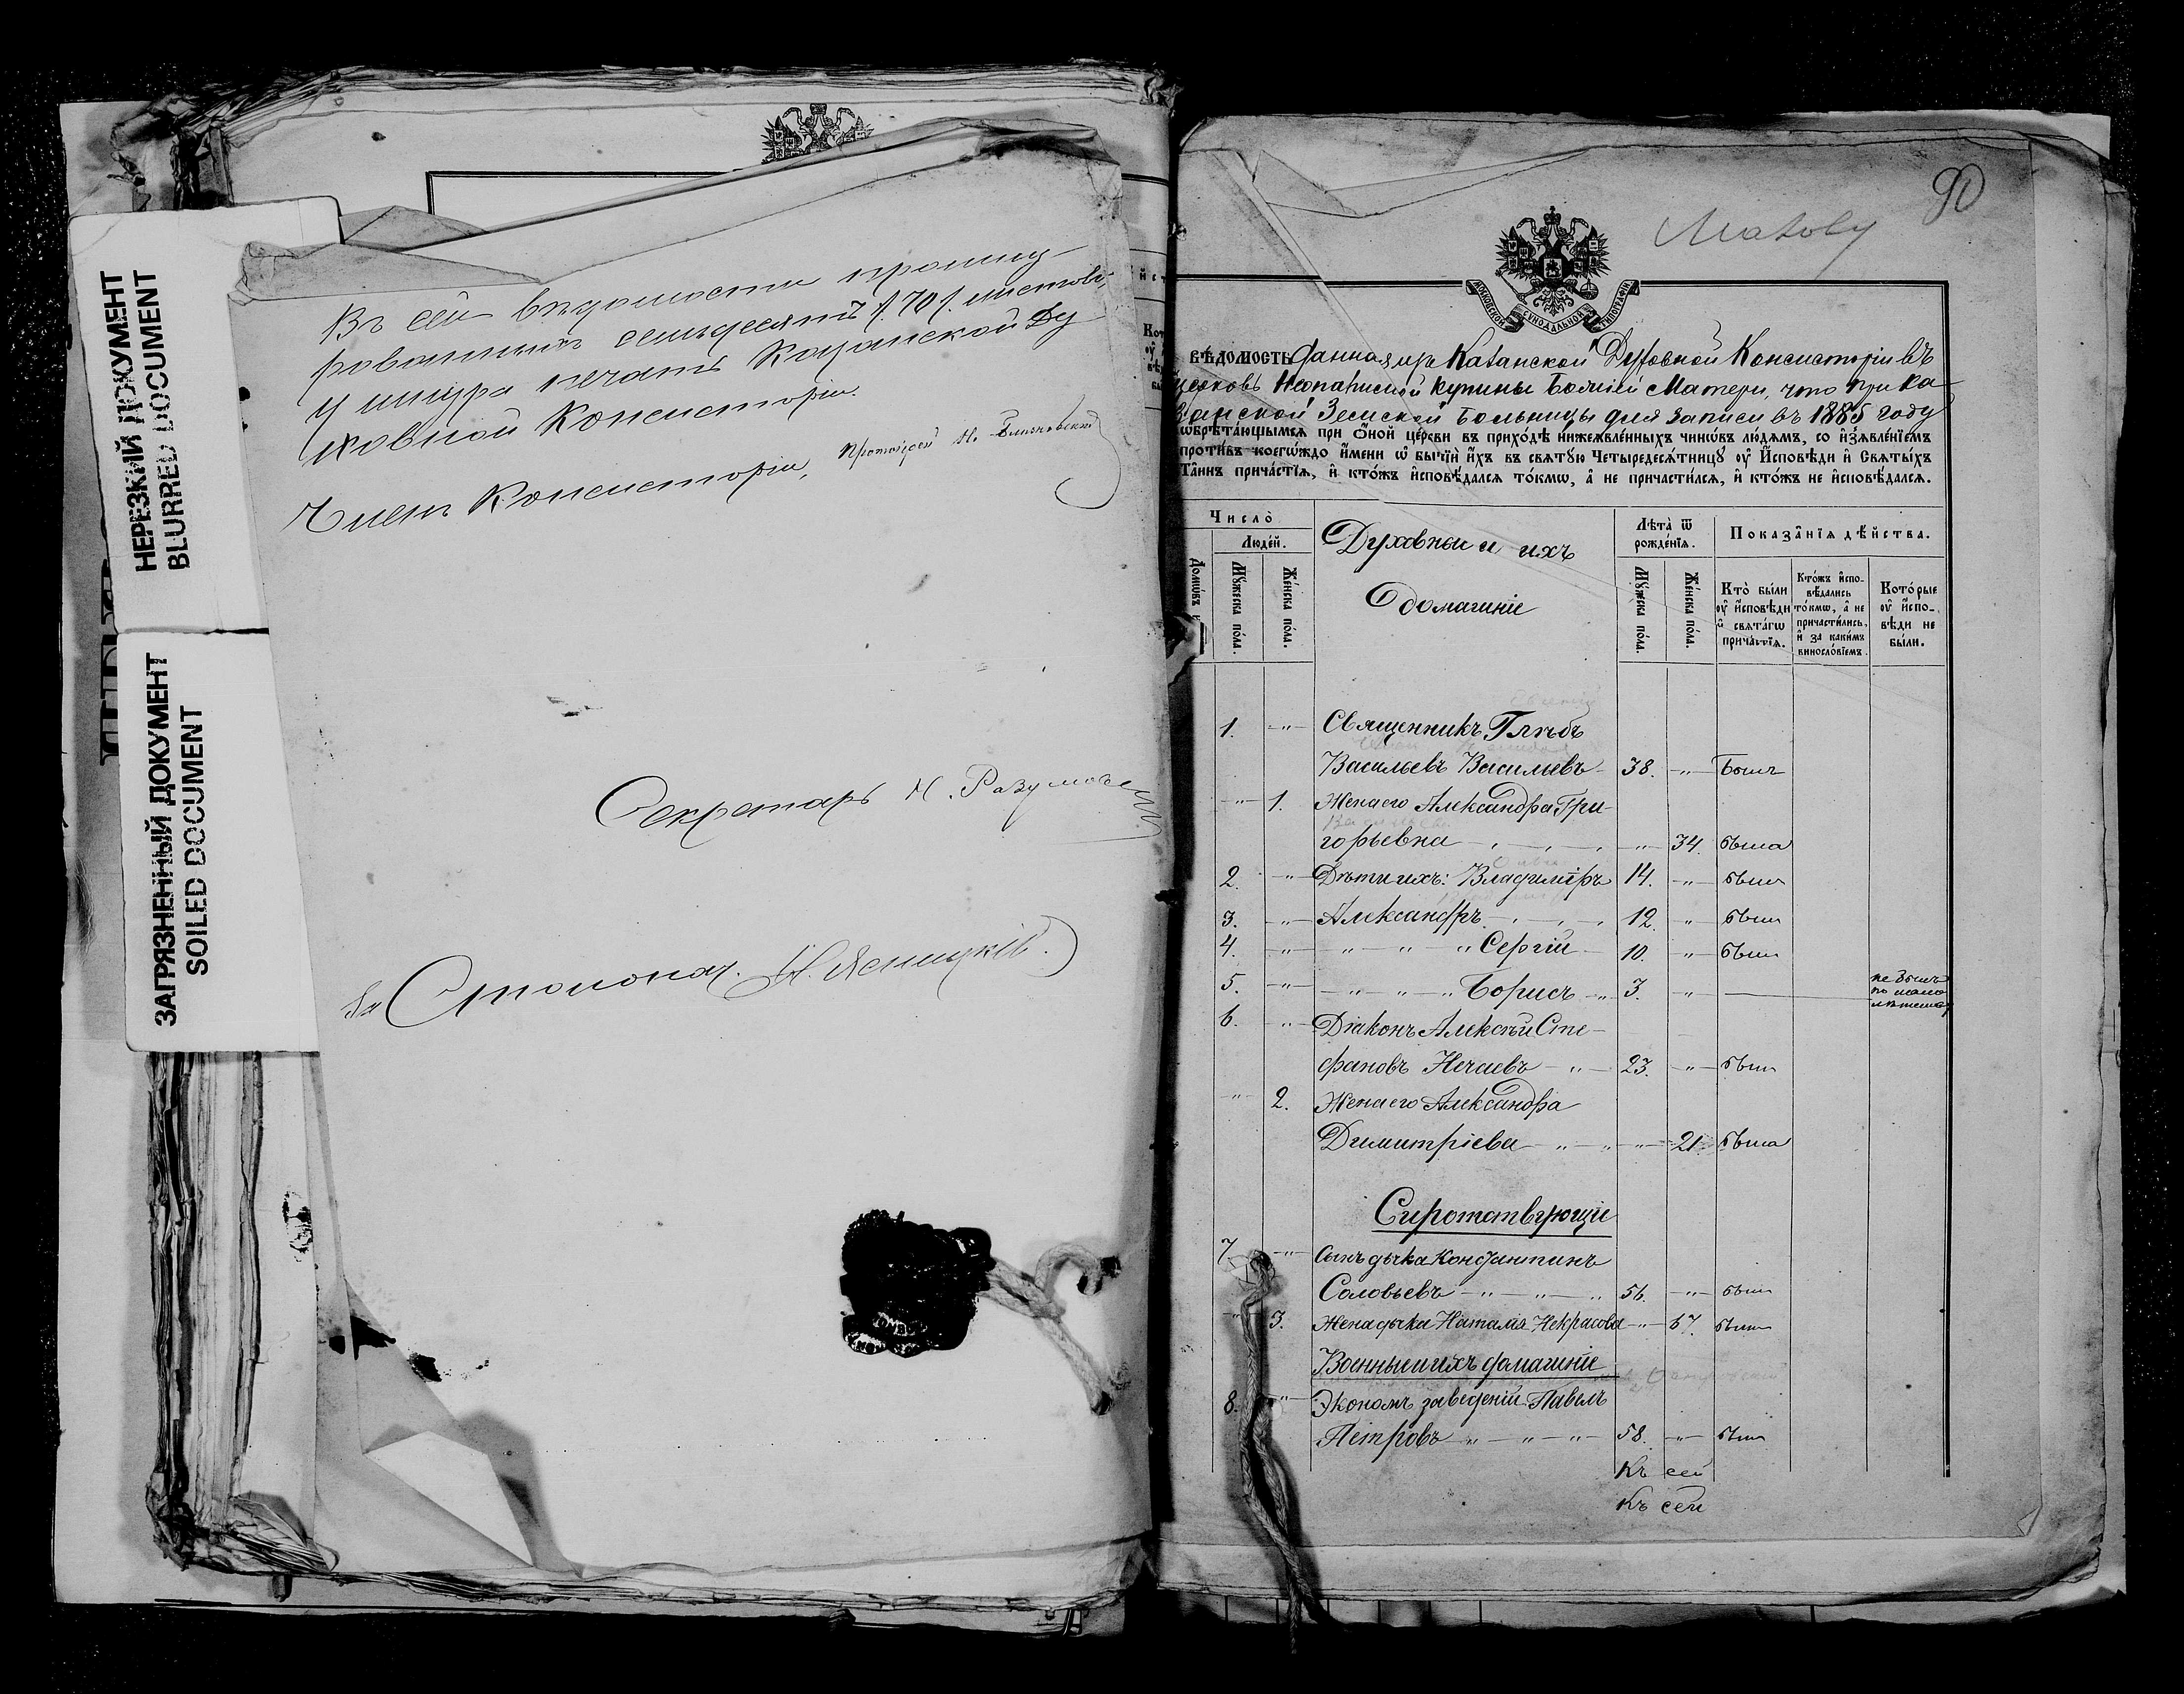 НЕРЕЗКИЙ ДОКУМЕНТ
BLURRED DOCUMENT
ЗАГРЯЗНЕННЫЙ ДОКУМЕНТ
SOILED DOCUMENT
Въ сей вѣдомости прону-
рованныхъ семьдесятъ /.70/. листовъ,
у шнура печать Казанской Ду
ховной Консисторіи.
Членъ Консисторіи, Протоіерей
Секретарь Н. Разумовскій
За Столонач. Н. Ясницкій.
90
МОСКОВСКОЙ СѴНОДАЛЬНОЙ ТИПОГРАФІИ
ВѢДОМОСТЬ данная изъ Казанской Духовной Консисторіи въ
церковь Неопалимой Купины Божіей Матери, что при Ка
занской Земской Больницы для записи въ 1885 году
ѡ҆брѣта́ющымсѧ при ѻ҆́ной це́ркви въ прихо́дѣ нижеѧвле́нныхъ чинѡ́въ лю́дѧмъ, со и҆з̾ѧвле́нїемъ
проти́въ коегѡ́ждо и҆́мени ѡ҆ бытїи́ и҆́хъ въ свѧту́ю Четыредесѧ́тницꙋ ᲂу҆ И҆сповѣ́ди и҆ Свѧты́хъ
Та́инъ прича́стїѧ, и҆ кто́жъ и҆сповѣ́далсѧ то́кмѡ, а҆ не причасти́лсѧ, и҆ кто́жъ не и҆сповѣ́далсѧ.
Число̀
Люде́й.
Домѡ́въ
Мꙋ́жеска по́ла.
Же́нска по́ла.
Духовныи и ихъ
домашніе
Лѣта̀ ѿ рожде́нїѧ.
Мꙋ́жеска по́ла.
Же́нска по́ла.
Показа̂нїѧ дѣ́йства.
Кто̀ бы́ли ᲂу҆ и҆сповѣ́ди и҆ свѧта́гѡ прича́стїѧ.
Кто́жъ и҆спо-вѣ́дались то́кмѡ, а҆ не причасти́лись, и҆ за каки́мъ виносло́вїемъ.
Кото́рые ᲂу҆ и҆спо-вѣ́ди не бы́ли.
1. -"- Священникъ Глѣбъ
Васильевъ Васильевъ 38. -"- Былъ
-"- 1. Жена его Александра Гри-
горьевна -"- 34. была
2. -"- Дѣти ихъ: Владиміръ 14. -"- былъ
3. -"- Александръ 12. " былъ
4. -"- " " " Сергій 10. " былъ
5. -"- " " " Борисъ 3. " не былъ по мало лѣтству
6. -"- Діаконъ Алексѣй Сте-
фановъ Нечаевъ 23. -"- былъ
-"- 2. Жена его Александра
Димитріева -"- 21. была
Сиротствующіе
7. -"- Сынъ дьчка Константинъ
Соловьевъ 56. -"- былъ
" 3. Жена дьчка Наталія Некрасова -"- 67. была
Военныи и ихъ домашніе
8. -"- Экономъ заведеній Павелъ
Петровъ 58. -"- былъ
Къ сей
Къ сей